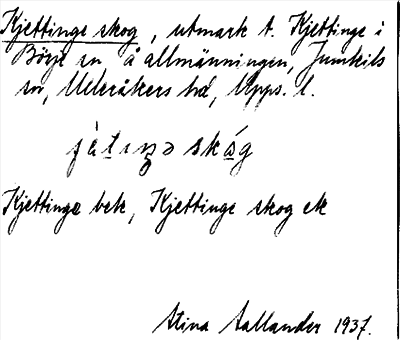 Kjettinge skog, utmark t. Kjettinge i
Börje sn å allmänningen, Jumkils
sn, Ulleråkers hd, Upps. l.
Kjettinge bek, Kjettinge skog ek
Stina Sallander 1937.